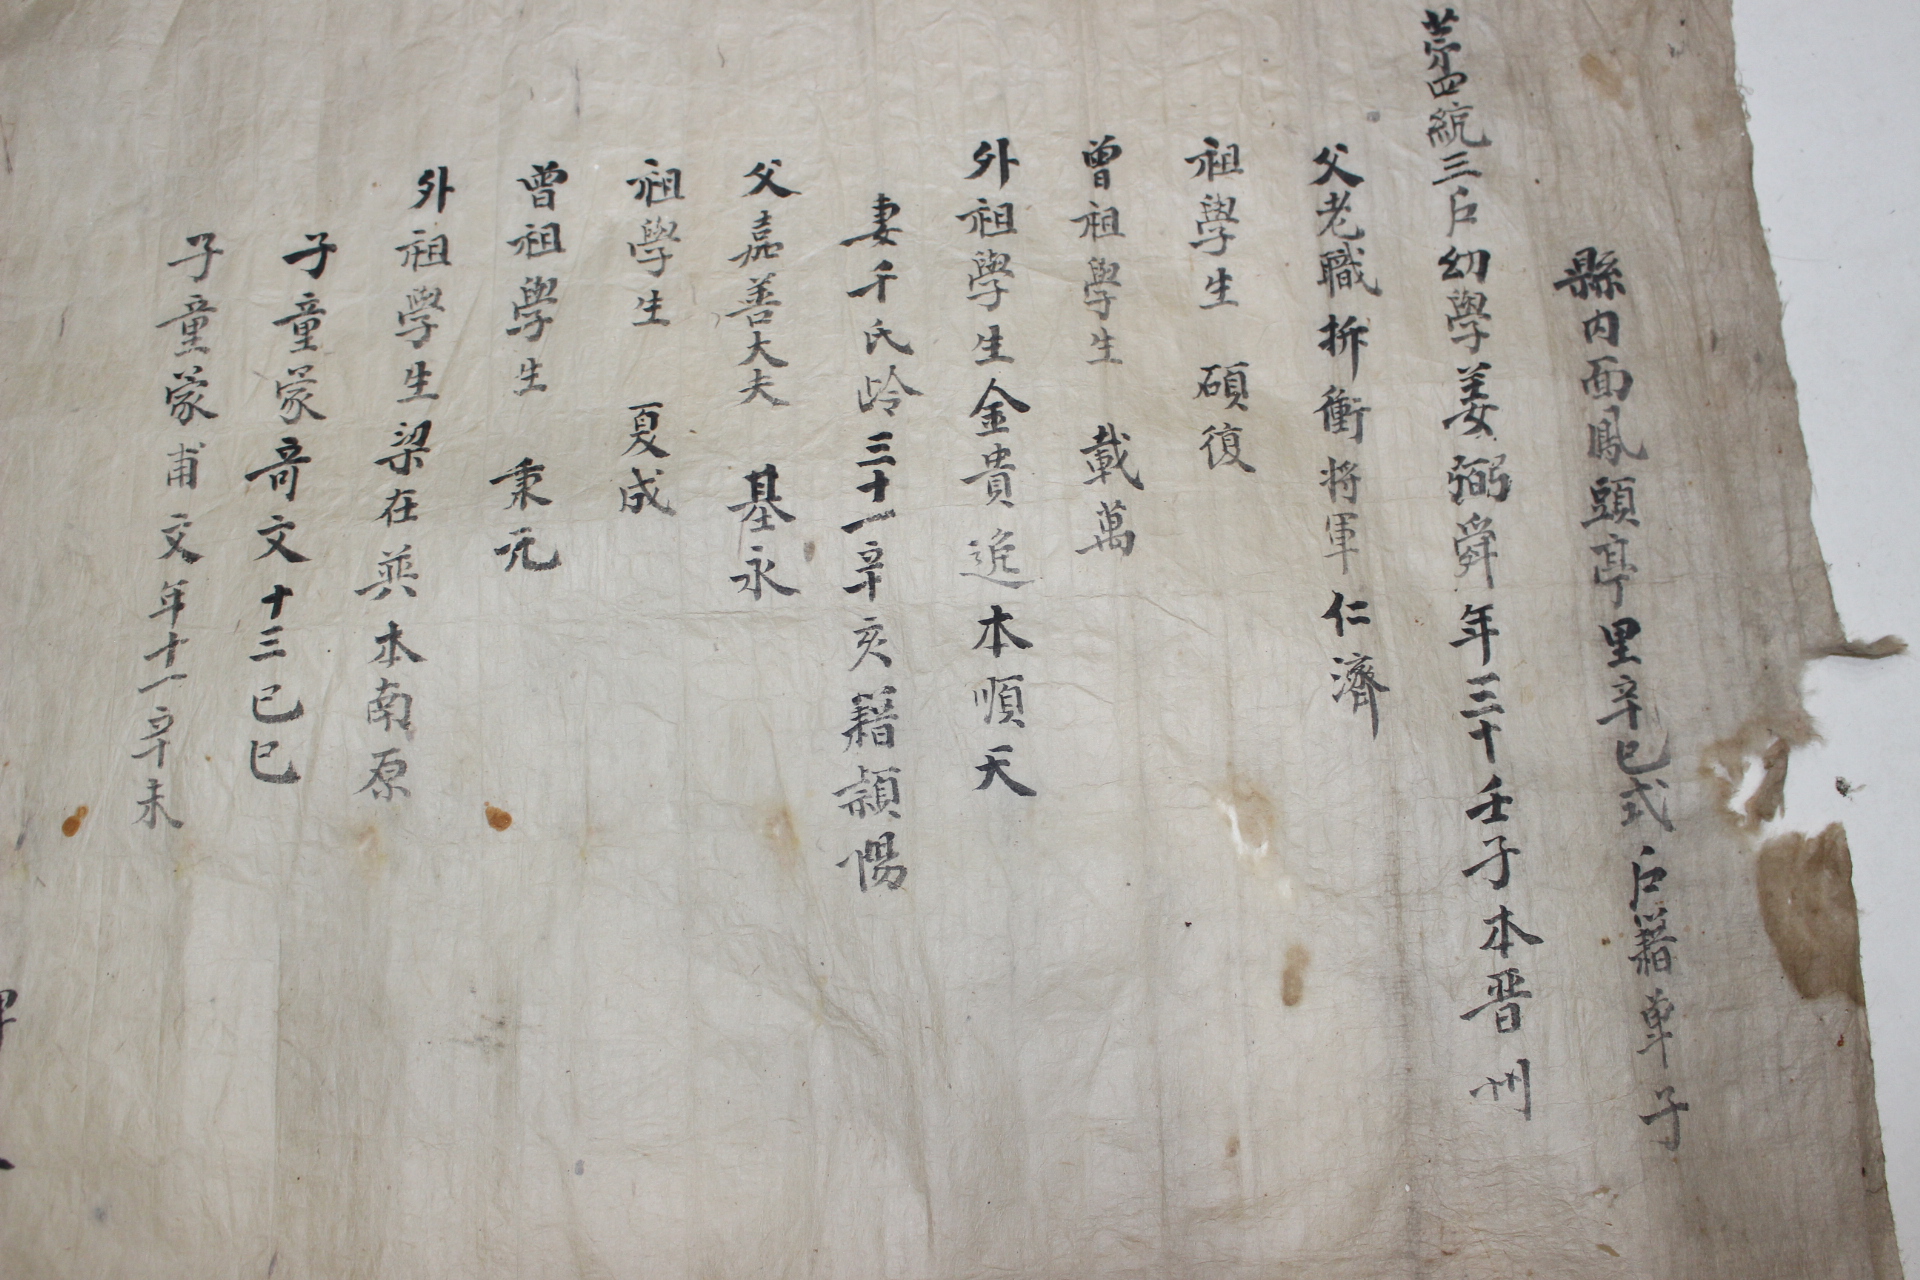 縣內面鳳頭亭里辛巳式戶籍單子
第四統三戶幼學姜弼舜年三十壬子本晉州
父老職折衝將軍仁濟
祖學生碩復
曾祖學生載萬
外祖學生金貴 本順天
妻千氏齡三十一辛亥籍穎陽
父嘉善大夫基永
祖學生夏成
曾祖學生秉元
外祖學生梁在英本南原
子童蒙奇文十三己巳
子童蒙甫文年十一辛未